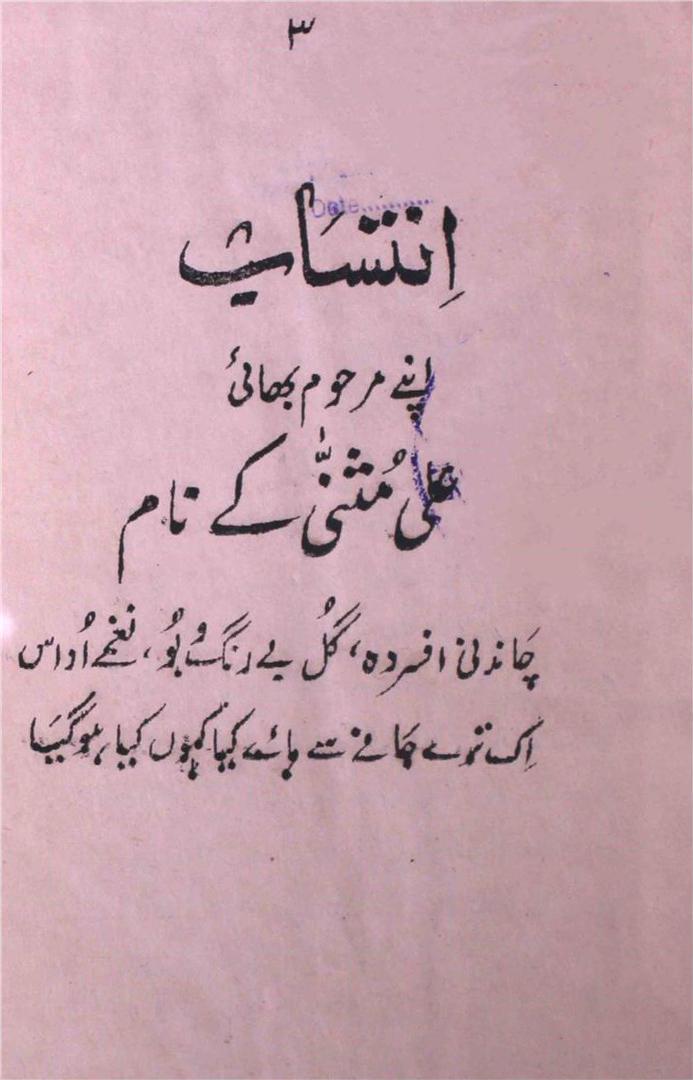 ۳
Date.............
اِنتسَاب
اپنے مرحوم بھائی
علی مُثنّٰی کے نام
چَاندنی افسردہ، گُل بے رنگ و بُو، نغمے اُداس
اِک ترے جَانے سے ہائے، کیا کہوں کیا، ہو گیَا